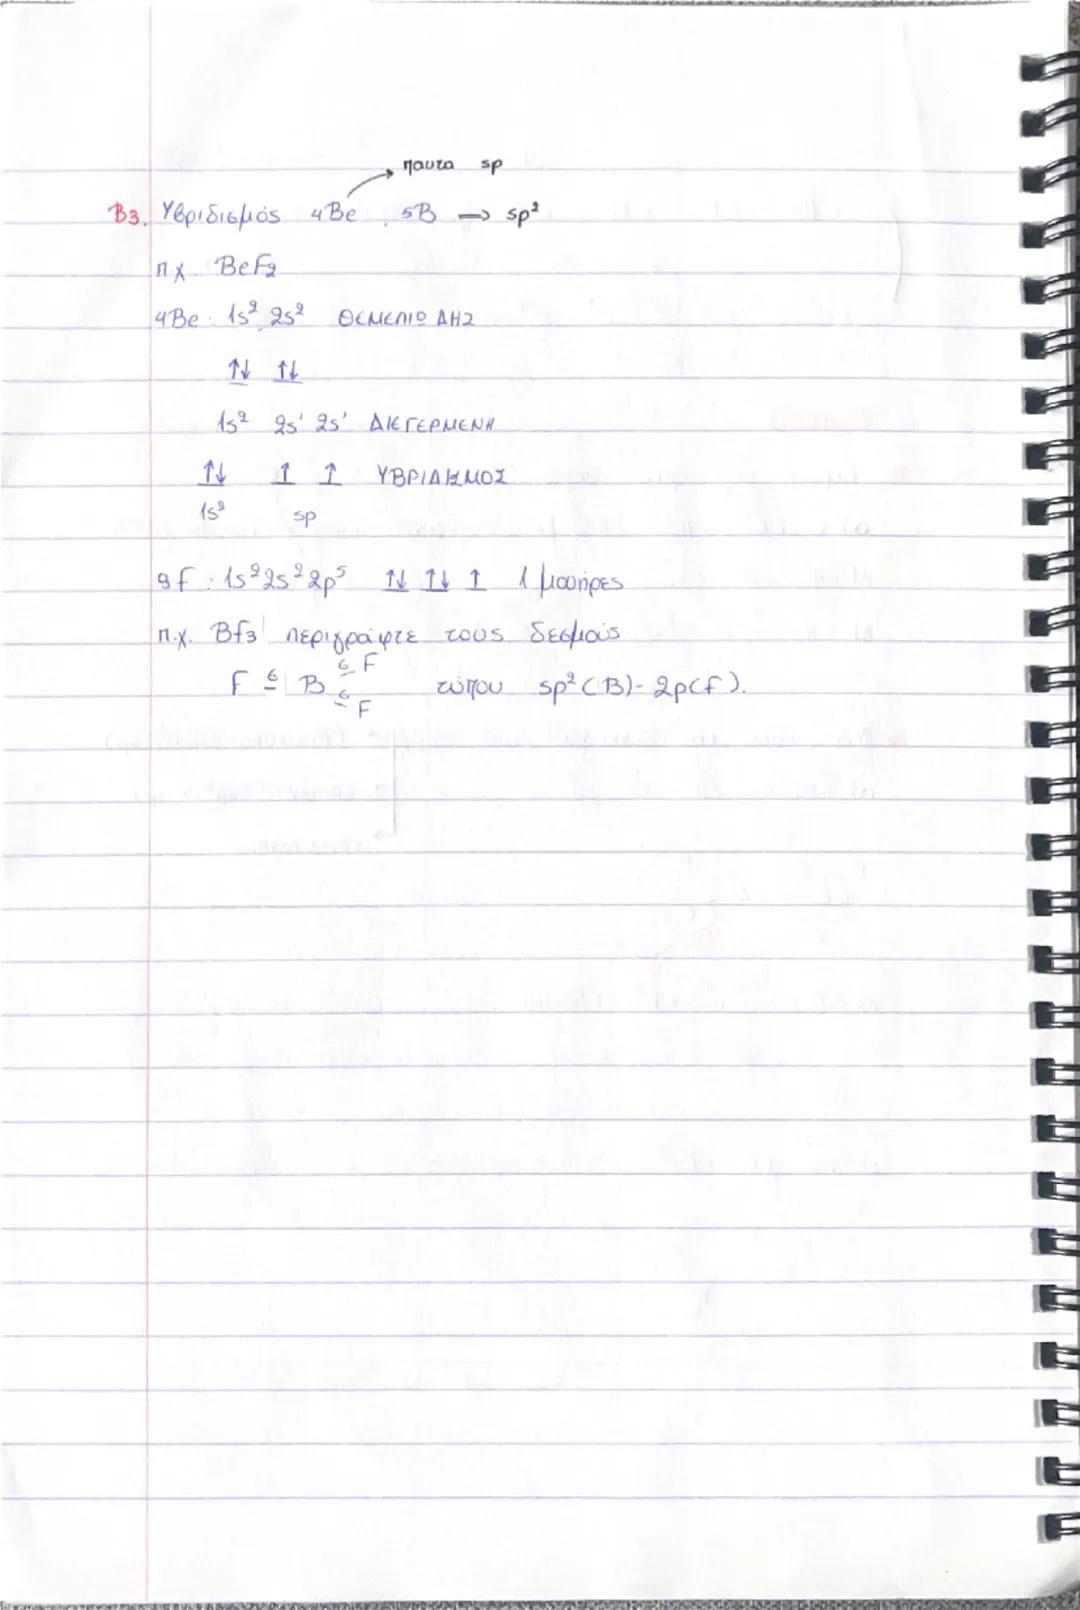 παντα sp
B3. Υβριδισμός 4Be, 5B → sp²
π.χ. BeF2
4Be: 1s² 2s² ΘΕΜΕΛΙΩΔΗΣ
↑↓ ↑↓
1s² 2s¹ 2s¹ ΔΙΕΓΕΡΜΕΝΗ
↑↓ ↑ ↑ ΥΒΡΙΔΙΣΜΟΣ
1s² sp
9F: 1s² 2s² 2p⁵ ↑↓ ↑↓ ↑ 1 μονήρες
π.χ. BF3 περιγράψτε τους δεσμούς
σ F
F σ B
σ F
τύπου sp²(B)-2p(F).